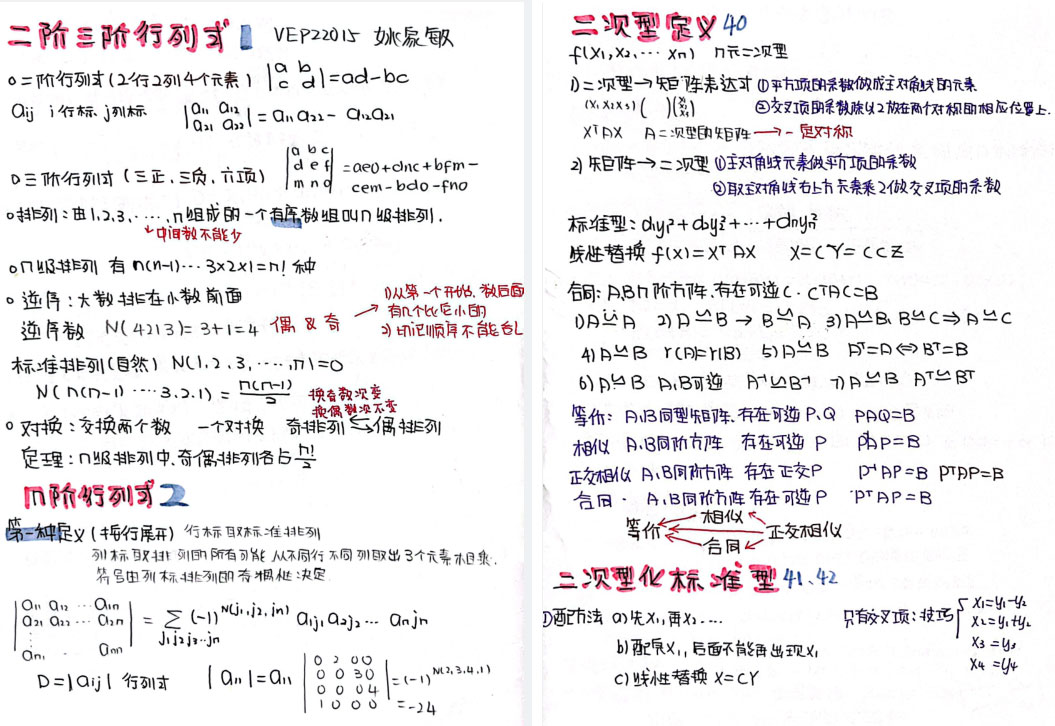 二阶三阶行列式 1 VEP22015 姚家敏
o 二阶行列式(2行2列4个元素) |a b c d| = ad-bc
aij i行标、j列标 |a11 a12 a21 a22| = a11a22 - a12a21
o 三阶行列式(三正、三负、六项) |a b c d e f m n o| = aeo+dnc+bfm-
cem-bdo-fno
o 排列:由1,2,3,……,n组成的一个有序数组叫n级排列.
中间数不能少
o n级排列 有n(n-1)…3×2×1=n! 种
o 逆序:大数排在小数前面
逆序数 N(4213)=3+1=4 偶&奇
1)从第一个开始,数后面
有几个比它小的
2)切记顺序不能乱
标准排列(自然) N(1,2,3,……,n)=0
N(n(n-1)……3.2.1)=n(n-1)/2
换奇数次变
换偶数次不变
o 对换:交换两个数 一个对换 奇排列⇆偶排列
定理:n级排列中,奇偶排列各占n!/2
n阶行列式 2
第一种定义(按行展开) 行标取标准排列
列标取排列的所有可能 从不同行不同列取出3个元素相乘.
符号由列标排列的奇偶性决定.
|a11 a12 …a1n
a21 a22 … a2n
⋮
an1 ann| = Σ j1j2j3…jn (-1)^N(j1,j2,jn) a1j1 a2j2 … anjn
D=|aij| 行列式 |a11|=a11 |0 2 0 0
0 0 3 0
0 0 0 4
1 0 0 0| =(-1)^N(2,3,4,1)
=-24
二次型定义 40
f(x1,x2,… xn) n元二次型
1)二次型→矩阵表达式 ①平方项的系数做成主对角线的元素
(x1 x2 x3)( )(x1 x2 x3) ②交叉项的系数除以2放在两个对称的相应位置上.
XᵀAX A=二次型的矩阵→一定对称
2) 矩阵→二次型 ①主对角线元素做平方项的系数
②取主对角线右上方元素乘2做交叉项的系数
标准型:d1y1²+d2y2²+…+dnyn²
线性替换 f(x)=XᵀAX X=CY=CCZ
合同:A,B n阶方阵,存在可逆C.CᵀAC=B
1)A≃A 2)A≃B → B≃A 3)A≃B, B≃C⇒A≃C
4)A≃B r(A)=r(B) 5)A≃B Aᵀ=A⇔Bᵀ=B
6)A≃B A,B可逆 A⁻¹≃B⁻¹ 7)A≃B Aᵀ≃Bᵀ
等价: A,B同型矩阵,存在可逆P、Q PAQ=B
相似 A,B同阶方阵 存在可逆 P P⁻¹AP=B
正交相似 A,B同阶方阵 存在正交P P⁻¹AP=B PᵀAP=B
合同. A,B同阶方阵 存在可逆P PᵀAP=B
相似
等价 正交相似
合同
二次型化标准型 41、42
①配方法 a)先x1,再x2…. 只有交叉项:技巧
b)配完x1,后面不能再出现x1
c)线性替换 X=CY
x1=y1-y2
x2=y1+y2
x3=y3
x4=y4